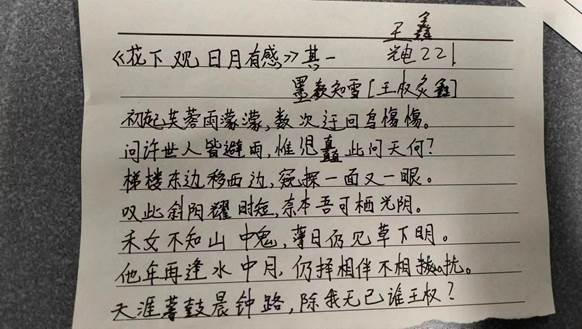 王鑫
光电221
《花下观日月有感》其一
墨教知雪[王权炙鑫]
初起芙蓉雨濛濛,数次迂回鸟傷傷。
问许世人皆避雨,惟児驫此问天何?
梯楼东边移西边,窥探一面又一眼。
叹此斜阴耀时短,奈本吾可栖光阴。
禾女不知山中鬼,草日仍见草下明。
他年再逢水中月,仍择相伴不相扰。
天涯暮鼓晨钟路,除我无已谁王权?